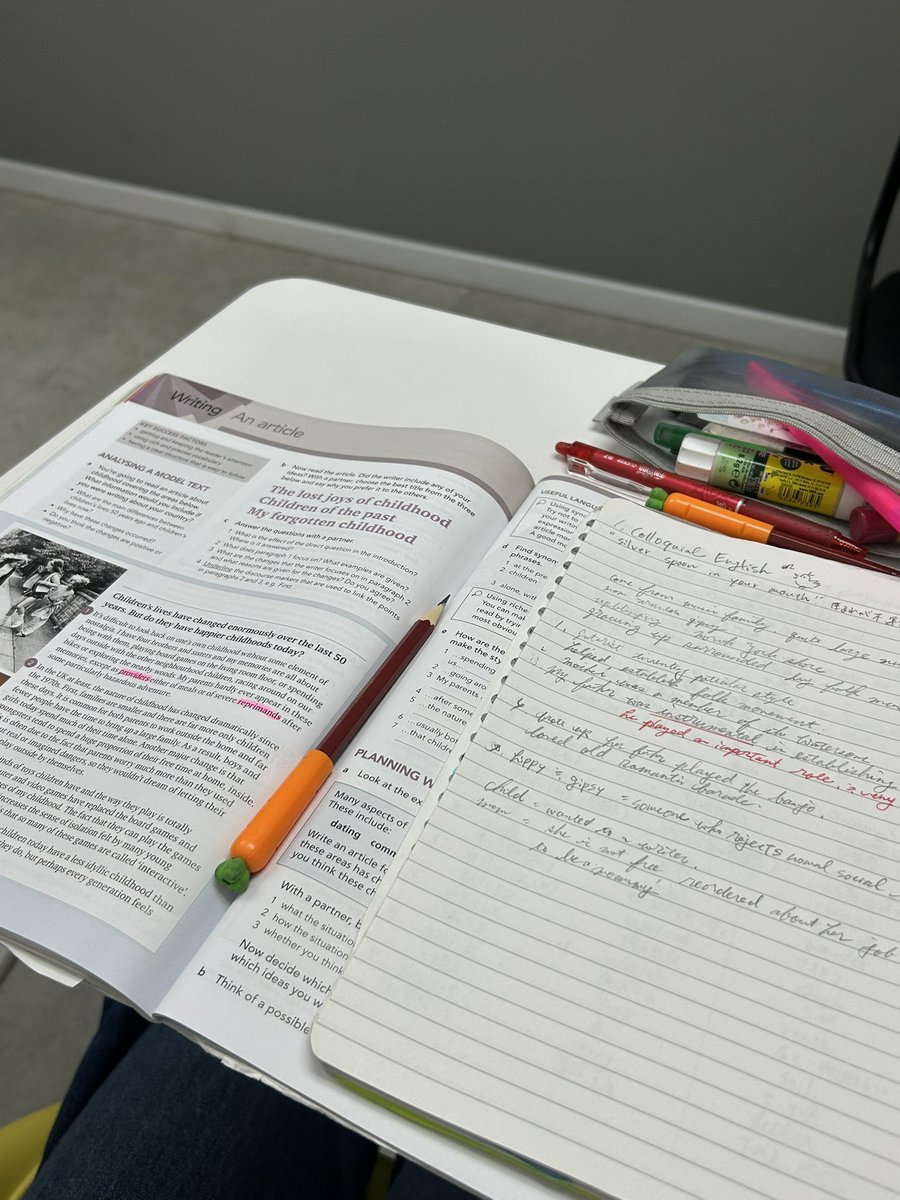 Writing An article
KEY SUCCESS FACTORS
• getting and keeping the reader's attention
• using rich and precise vocabulary
• having a clear structure that is easy to follow
ANALYSING A MODEL TEXT
a You're going to read an article about
childhood covering the areas below.
What information would you include if
you were writing about your country?
• What are the main differences between
children's lives 50 years ago and children's
lives now?
• Why have these changes occurred?
• Do you think the changes are positive or
negative?
b Now read the article. Did the writer include any of your
ideas? With a partner, choose the best title from the three
below and say why you prefer it to the others.
The lost joys of childhood
Children of the past
My forgotten childhood
c Answer the questions with a partner.
1 What is the effect of the direct question in the introduction?
Where is it answered?
2 What does paragraph 1 focus on? What examples are given?
3 What are the changes that the writer focuses on in paragraph 2
and what reasons are given for the changes? Do you agree?
4 Underline the discourse markers that are used to link the points
in paragraphs 2 and 3, e.g. First…
Children's lives have changed enormously over the last 50
years. But do they have happier childhoods today?
1 It's difficult to look back on one's own childhood without some element of
nostalgia. I have four brothers and sisters and my memories are all about
being with them, playing board games on the living room floor, or spending
days outside with the other neighbourhood children, racing around on our
bikes or exploring the nearby woods. My parents hardly ever appear in these
memories, except as providers either of meals or of severe reprimands after
some particularly hazardous adventure.
2 In the UK at least, the nature of childhood has changed dramatically since
the 1970s. First, families are smaller and there are far more only children
these days. It is common for both parents to work outside the home and
fewer people have the time to bring up a large family. As a result, boys and
girls today spend much of their time alone. Another major change is that
youngsters tend to spend a huge proportion of their free time at home, inside.
is is often due to the fact that parents worry much more than they used
real or imagined dangers, so they wouldn't dream of letting their
play outside by themselves.
kinds of toys children have and the way they play is totally
uter and video games have replaced the board games and
es of my childhood. The fact that they can play the games
increases the sense of isolation felt by many young
is that so many of these games are called 'interactive'.
children today have a less idyllic childhood than
they do, but perhaps every generation feels
USEFUL LANGUA
Using syno
Try not to
your writin
expression
article mor
A good mo
d Find synon
phrases.
1 at the pre
2 children
3 alone, wit
Using riche
You can ma
read by tryin
most obviou
e How are the
make the sty
1 …spending
us…
2 …going aro
3 My parents
4 …after some
5 …the nature
6 …usually bou
that childre
PLANNING W
a Look at the ex
Many aspects of
These include:
dating comm
Write an article fo
these areas has ch
you think these ch
With a partner, b
1 what the situation
2 how the situation
3 whether you think
Now decide which
which ideas you w
b Think of a possible
1. Colloquial English
"silver spoon in your mouth"
come from music family
growing up
helped establish folk movement
mother was a member of the Waterson
my father was instrumental in establishing
he played an important role, a very
father played the banjo.
loved old
hippy = gipsy = someone who rejects normal social
child = wanted to a writer
mom = she is not free,
about her job
to be a mommy